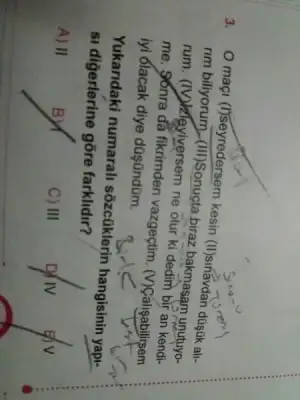 3. O maçı (I)seyredersem kesin (II)sınavdan düşük alı-
rım biliyorum (III)Sonuçta biraz bakmasam unutuyo-
rum. (IV)İzleyiversem ne olur ki dedim bir an kendi-
me. Sonra da fikrimden vazgeçtim. (V)Çalışabilirsem
iyi olacak diye düşündüm.
Yukarıdaki numaralı sözcüklerin hangisinin yapı-
sı diğerlerine göre farklıdır?
A) II B) I C) III D) IV E) V